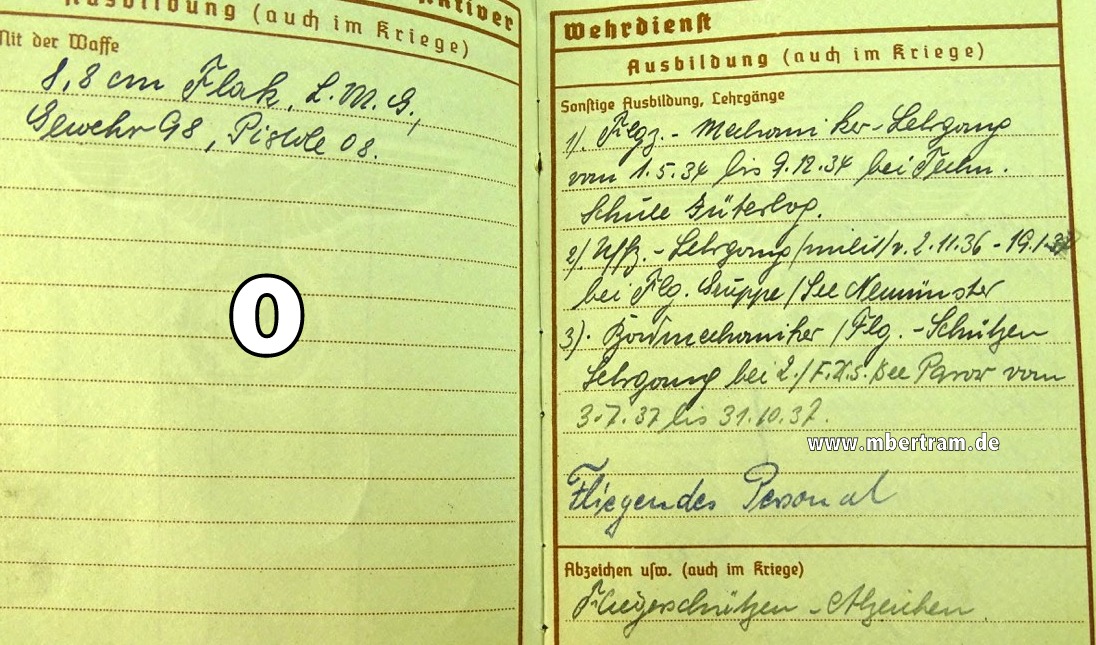 Aktiver
Ausbildung (auch im Kriege)
Mit der Waffe
8,8 cm Flak, L.M.G.,
Gewehr 98, Pistole 08.
0
Wehrdienst
Ausbildung (auch im Kriege)
Sonstige Ausbildung, Lehrgänge
1). Flgz.-Mechaniker-Lehrgang
vom 1.5.34 bis 9.12.34 bei Techn.
Schule Jüterbog.
2) Uffz.-Lehrgang /milit/ v. 2.11.36 - 19.1.37
bei Flg. Gruppe /See Neumünster
3). Bordmechaniker /Flg.-Schützen
Lehrgang bei 2./F.X.S. /See Parow vom
3.7.37 bis 31.10.37.
www.mbertram.de
Fliegendes Personal
Abzeichen usw. (auch im Kriege)
Fliegerschützen-Abzeichen